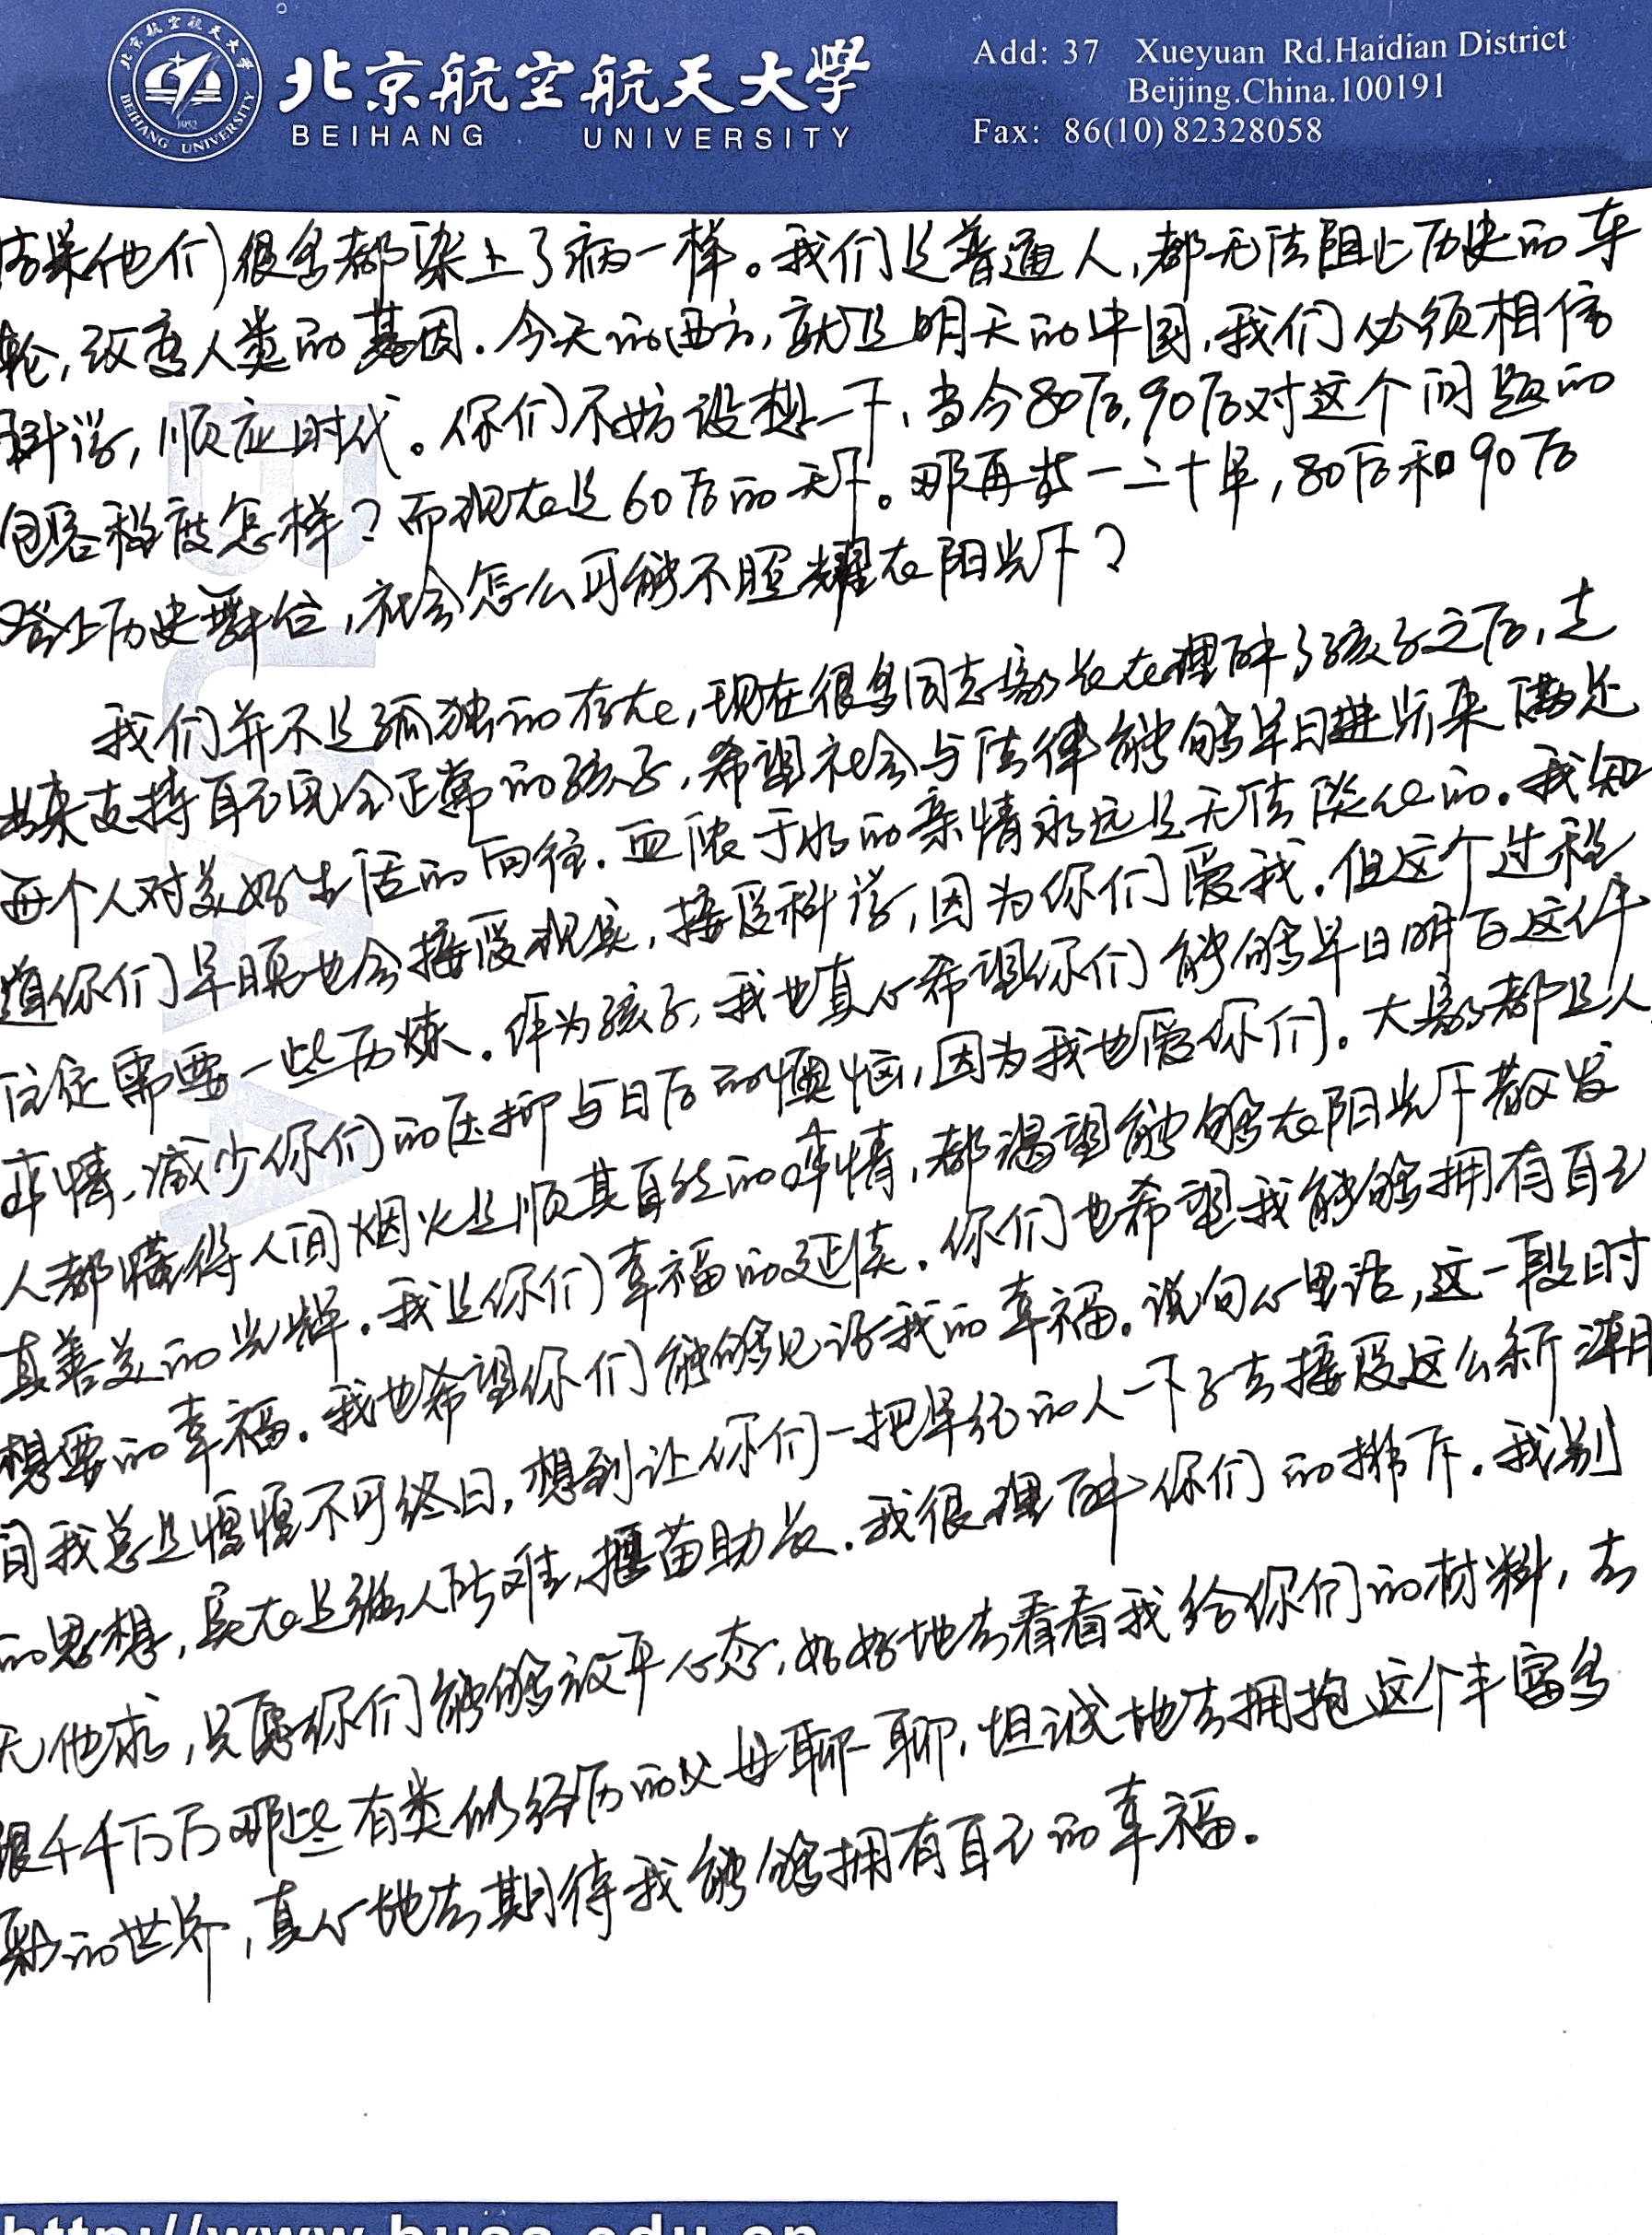 北京航空航天大学
BEIHANG UNIVERSITY
Add: 37 Xueyuan Rd.Haidian District
Beijing.China.100191
Fax: 86(10)82328058
结果他们很多都染上了病一样。我们是普通人,都无法阻止历史的车
轮,改变人类的基因.今天的西方,就是明天的中国,我们必须相信
科学,顺应时代。你们不妨设想一下,当今80后,90后对这个问题的
包容程度怎样?而现在是60后的天下。那再过一二十年,80后和90后
登上历史舞台,社会怎么可能不照耀在阳光下?
我们并不是孤独的存在,现在很多同志家长在理解了孩子之后,走
出来支持自己完全正常的孩子,希望社会与法律能够早日进步来满足
每个人对美好生活的向往.血浓于水的亲情永远是无法淡化的.我知
道你们早晚也会接受现实,接受科学,因为你们爱我.但这个过程
往往需要一些历炼.作为孩子,我也真心希望你们能够早日明白这件
事情,减少你们的压抑与日后的懊恼,因为我也爱你们.大家都是人,
人都懂得人间烟火是顺其自然的事情,都渴望能够在阳光下散发
真善美的光辉.我是你们幸福的延续.你们也希望我能够拥有自己
想要的幸福.我也希望你们能够见证我的幸福.说句心里话,这一段时
间我总是惶惶不可终日,想到让你们一把年纪的人一下子去接受这么新潮
的思想,实在是强人所难,揠苗助长.我很理解你们的排斥.我别
无他求,只愿你们能够放平心态,好好地去看看我给你们的材料,去
跟千千万万那些有类似经历的父母聊一聊,坦诚地去拥抱这个丰富多
彩的世界,真心地去期待我能够拥有自己的幸福.
http://www.buaa.edu.cn